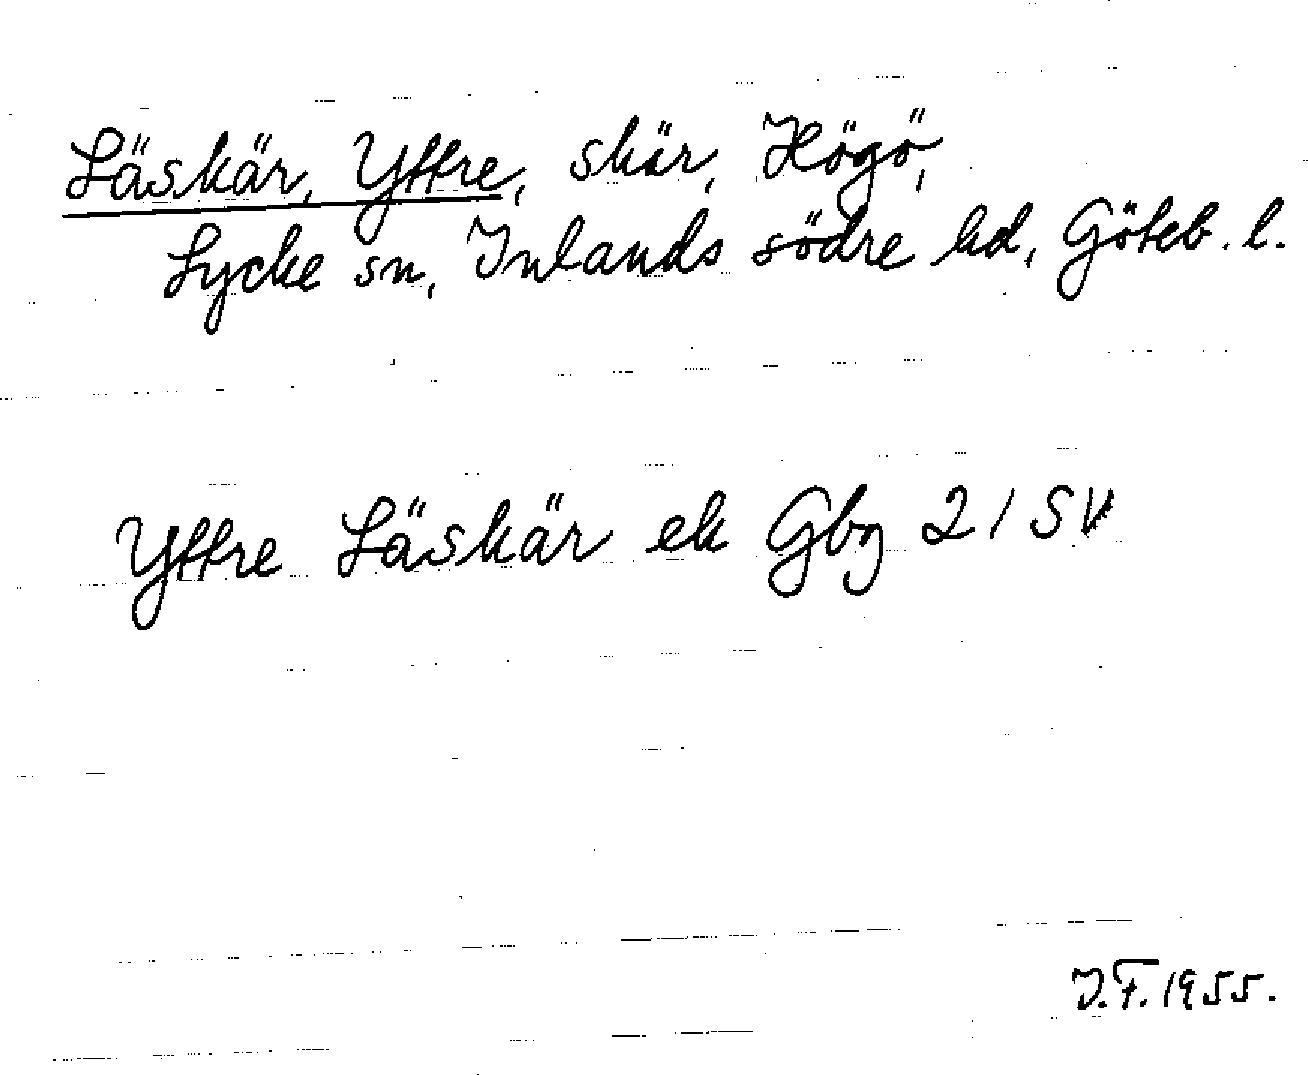 Läskär, Yttre, skär, Högö,
Lycke sn, Inlands södre hd, Göteb. l.
Yttre Läskär ek Gbg 21 SV
J.F. 1955.